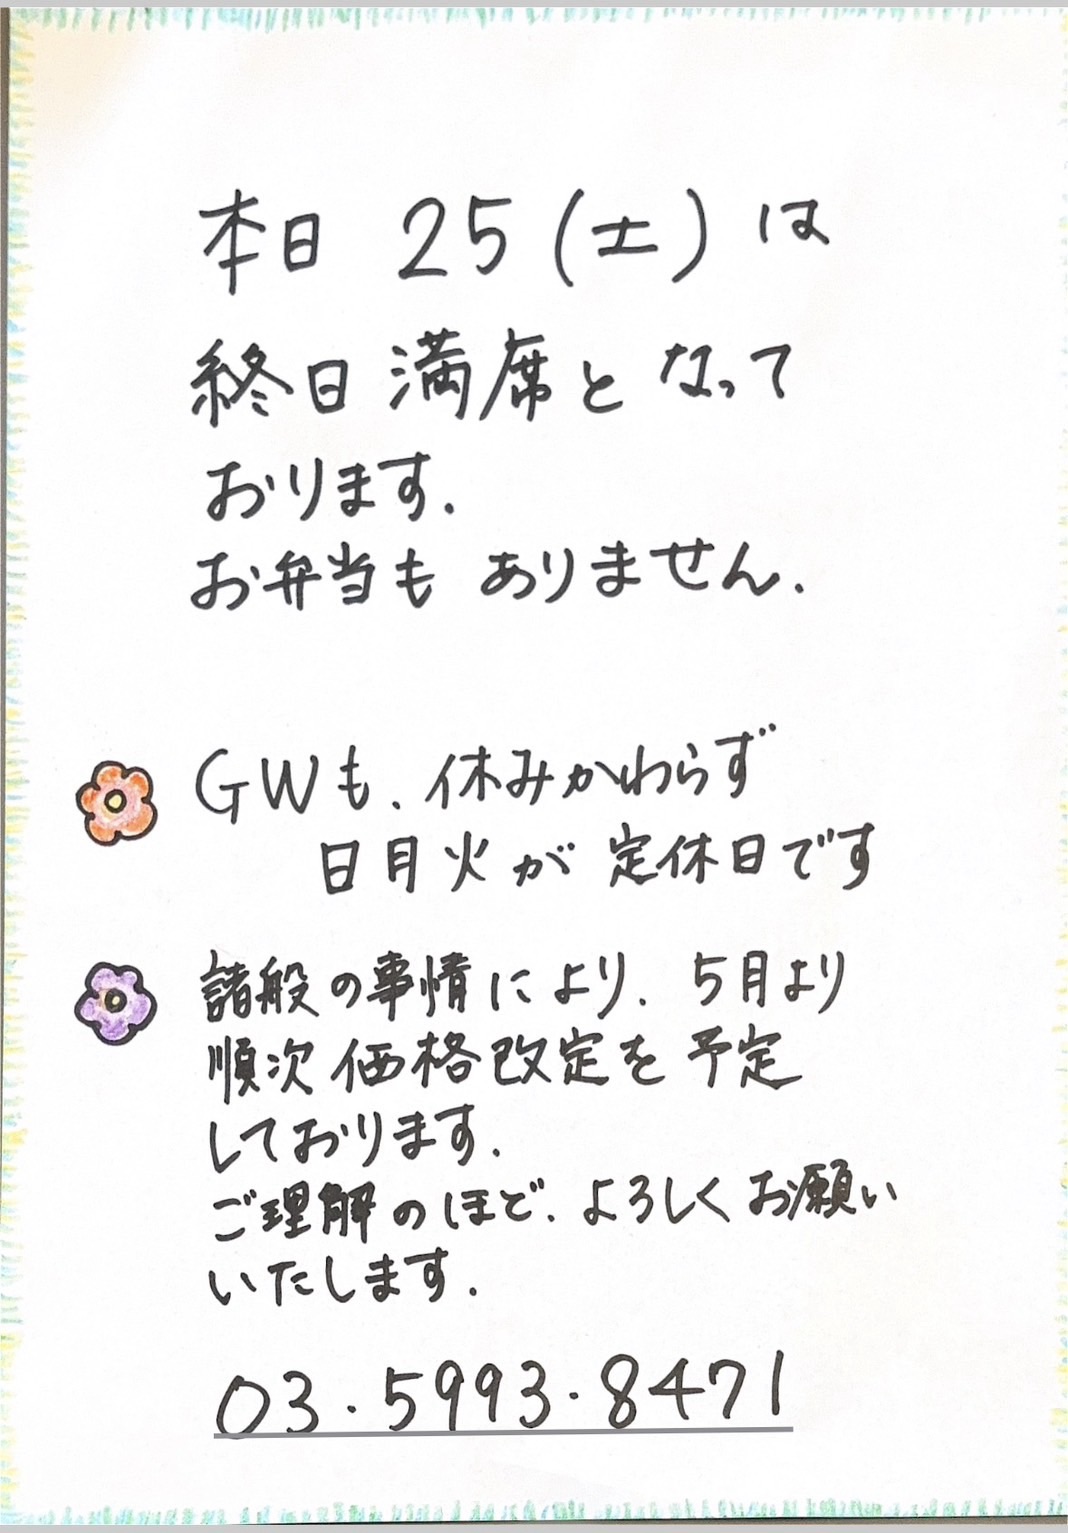 本日 25(土)は
終日満席となって
おります.
お弁当も ありません.
GWも、休みかわらず
日月火が 定休日です
諸般の事情により、5月より
順次価格改定を予定
しております.
ご理解のほど、よろしくお願い
いたします.
03.5993.8471